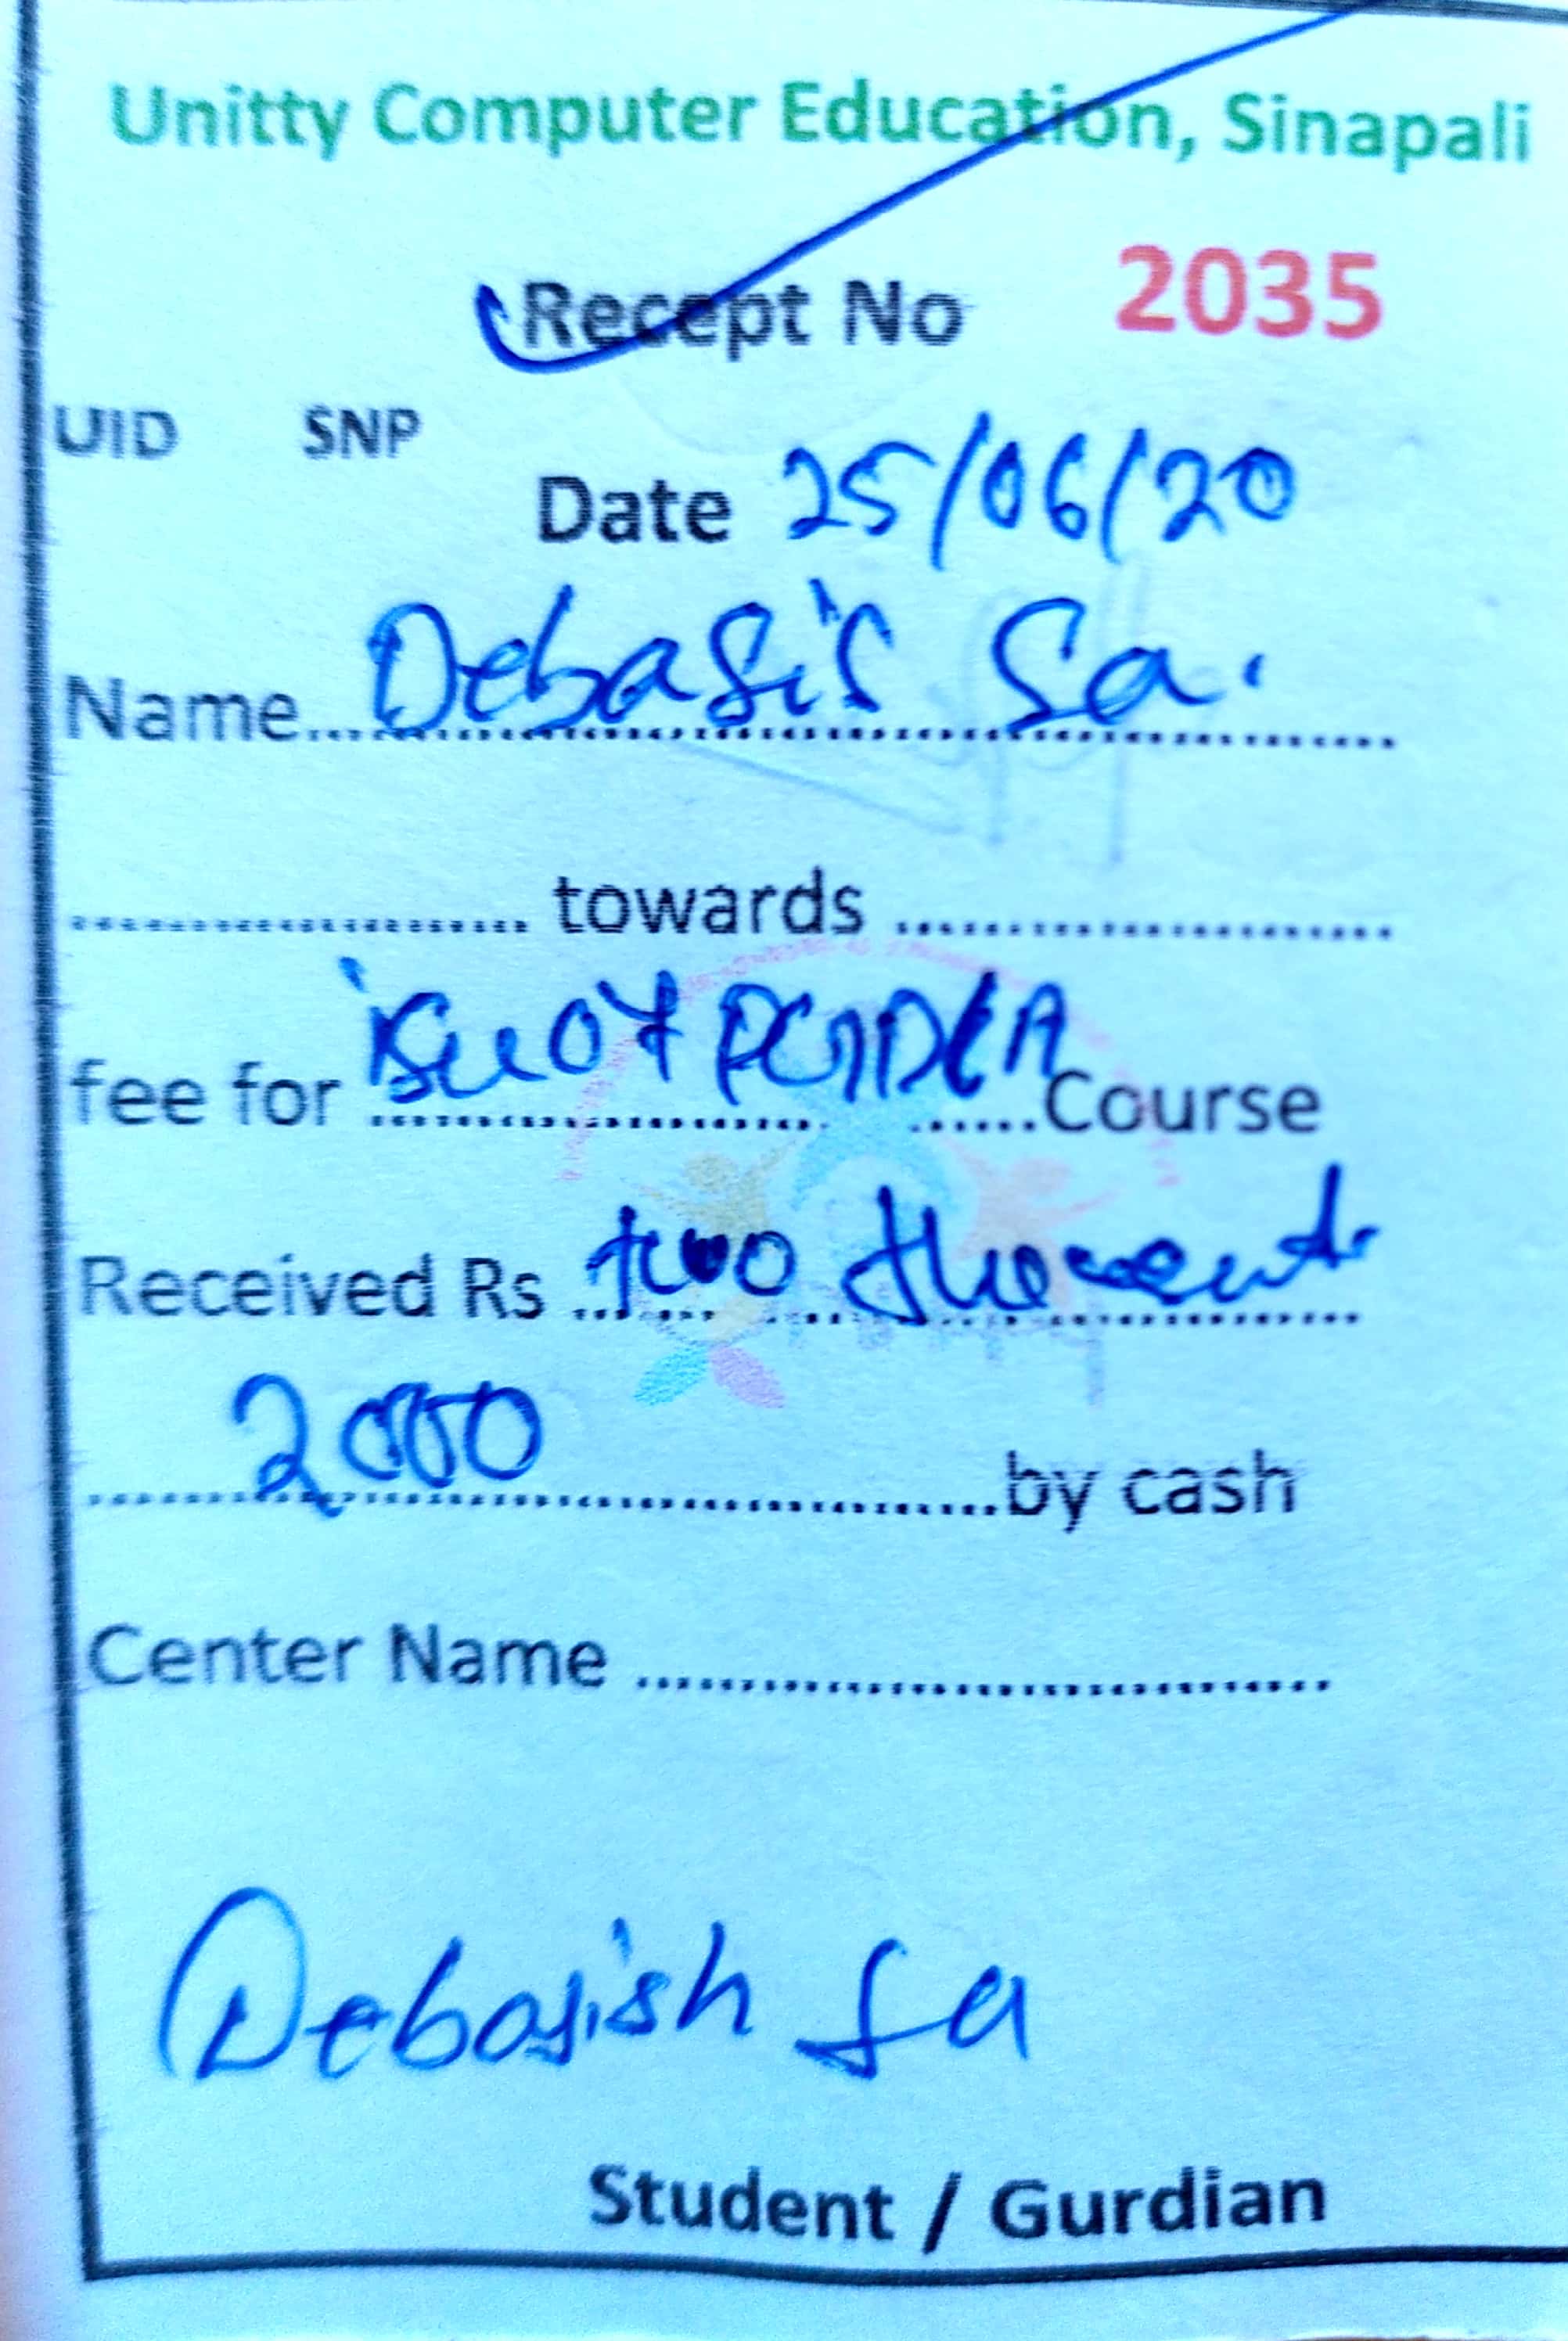 Unitty Computer Education, Sinapali
Recept No 2035
UID SNP
Date 25/06/20
Name Debasis Sa.
towards
fee for PGDCA Course
Received Rs two
2000 by cash
Center Name
Debasish Sa
Student / Gurdian